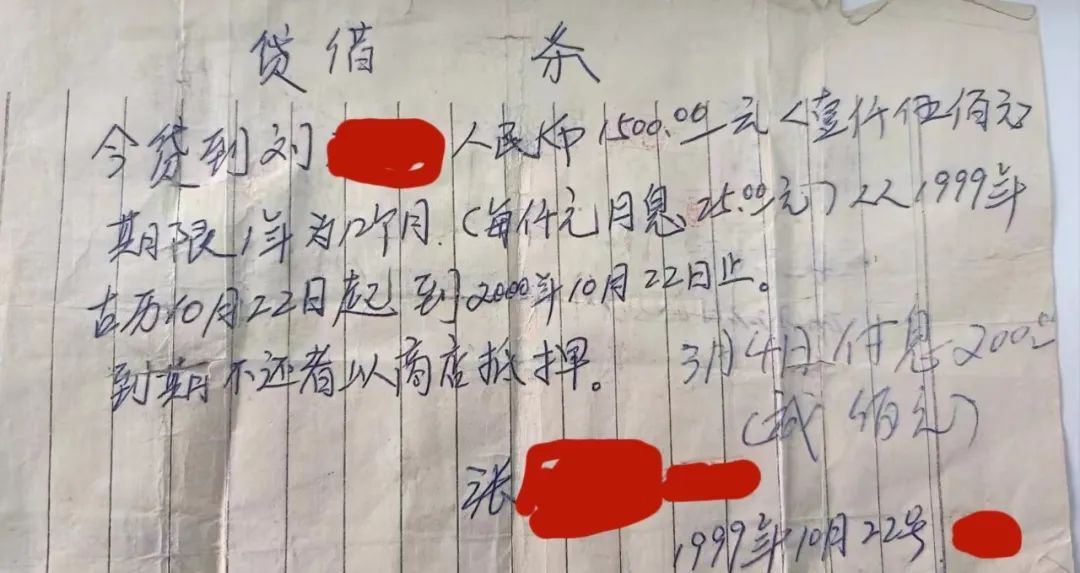 贷借条
今贷到刘 人民币1500.00元(壹仟伍佰元)
期限1年为12个月.(每仟元月息25.00元)从1999年
古历10月22日起到2000年10月22日止。
到期不还者以商店抵押。
3月4日付息200.00
(贰佰元)
张
1999年10月22号